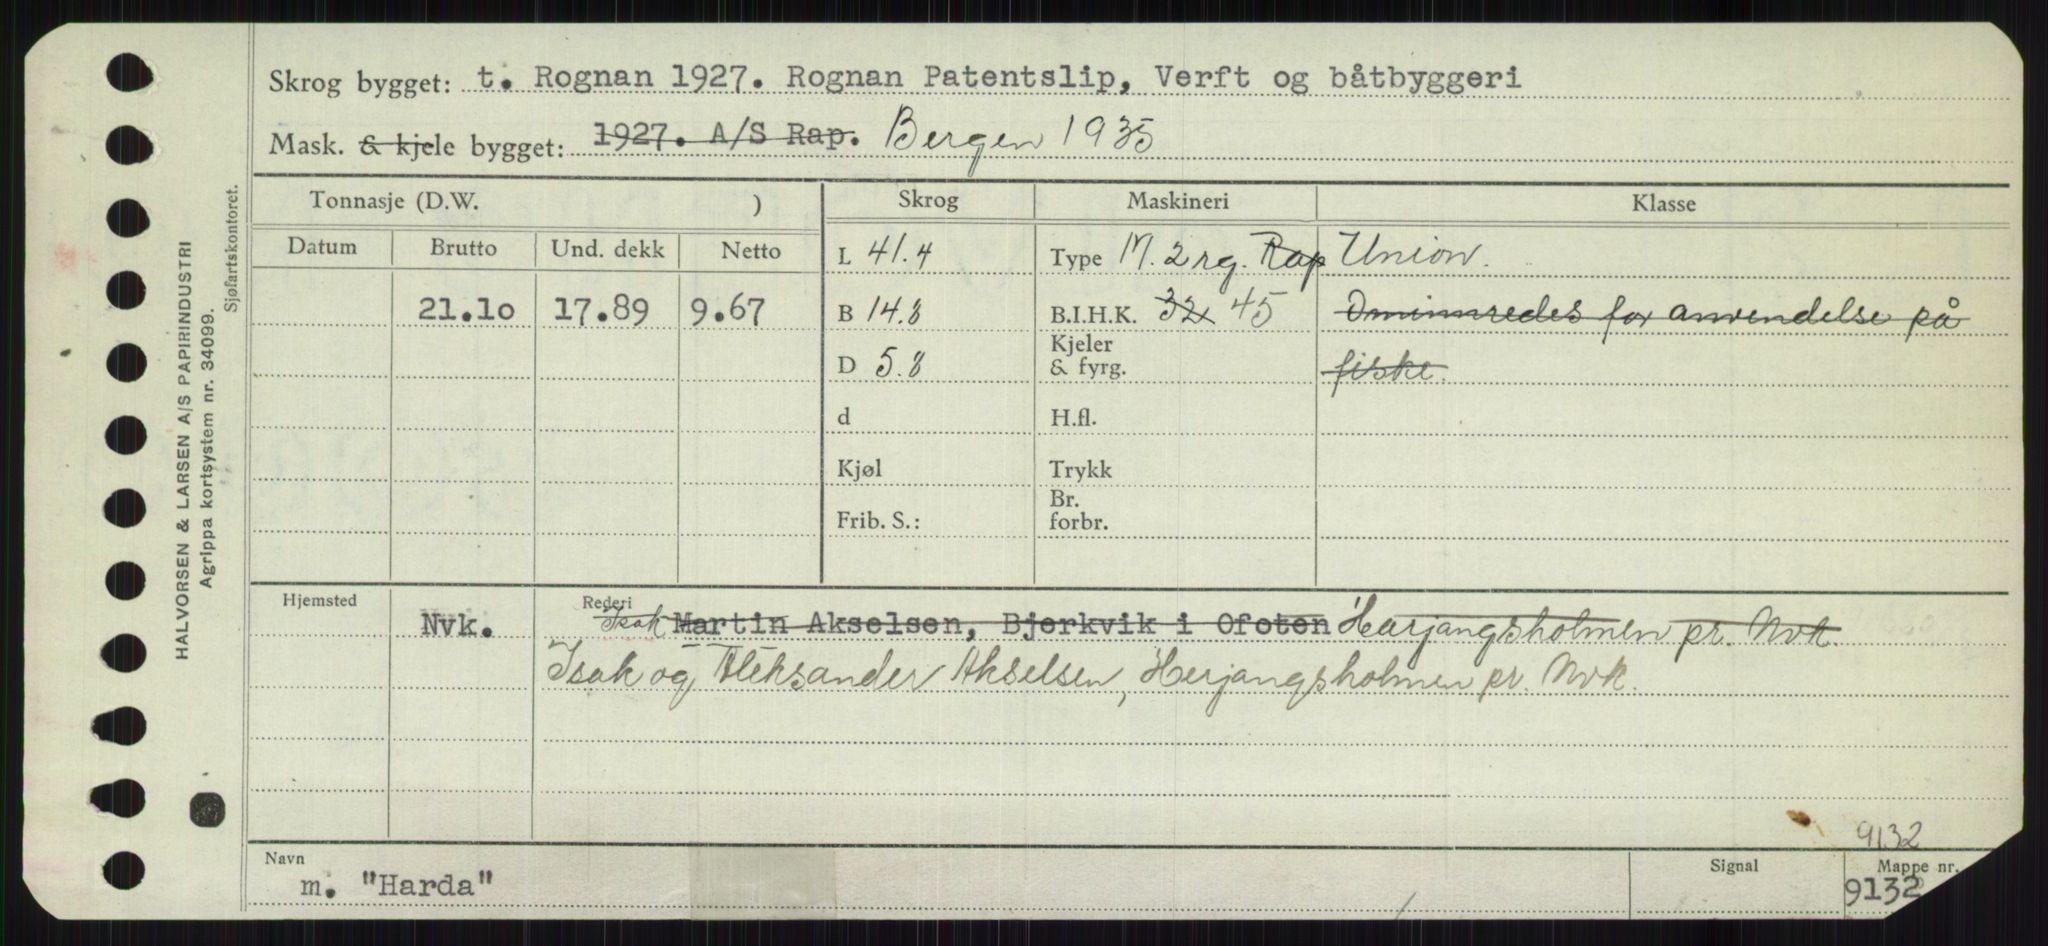 Skrog bygget: t. Rognan 1927. Rognan Patentslip, Verft og båtbyggeri
Mask. & kjele bygget: 1927. A/S Rap. Bergen 1935
Tonnasje (D.W. ) Skrog Maskineri Klasse
Datum Brutto Und. dekk Netto L 41.4 Type M. 2 rg. Rap Union.
21.10 17.89 9.67 B 14.8 B.I.H.K. 32 45 Ominnredes for anvendelse på
Kjeler
D 5.8 & fyrg. fiske.
d H.fl.
Kjøl Trykk
Br.
Frib. S.: forbr.
Hjemsted Rederi
Nvk. Isak Martin Akselsen, Bjerkvik i Ofoten Herjangsholmen pr. Nvk.
Isak og Aleksander Akselsen, Herjangsholmen pr. Nvk.
9132
Navn Signal Mappe nr.
m. "Harda" 9132
HALVORSEN & LARSEN A/S PAPIRINDUSTRI
Agrippa kortsystem nr. 34099.
Sjøfartskontoret.